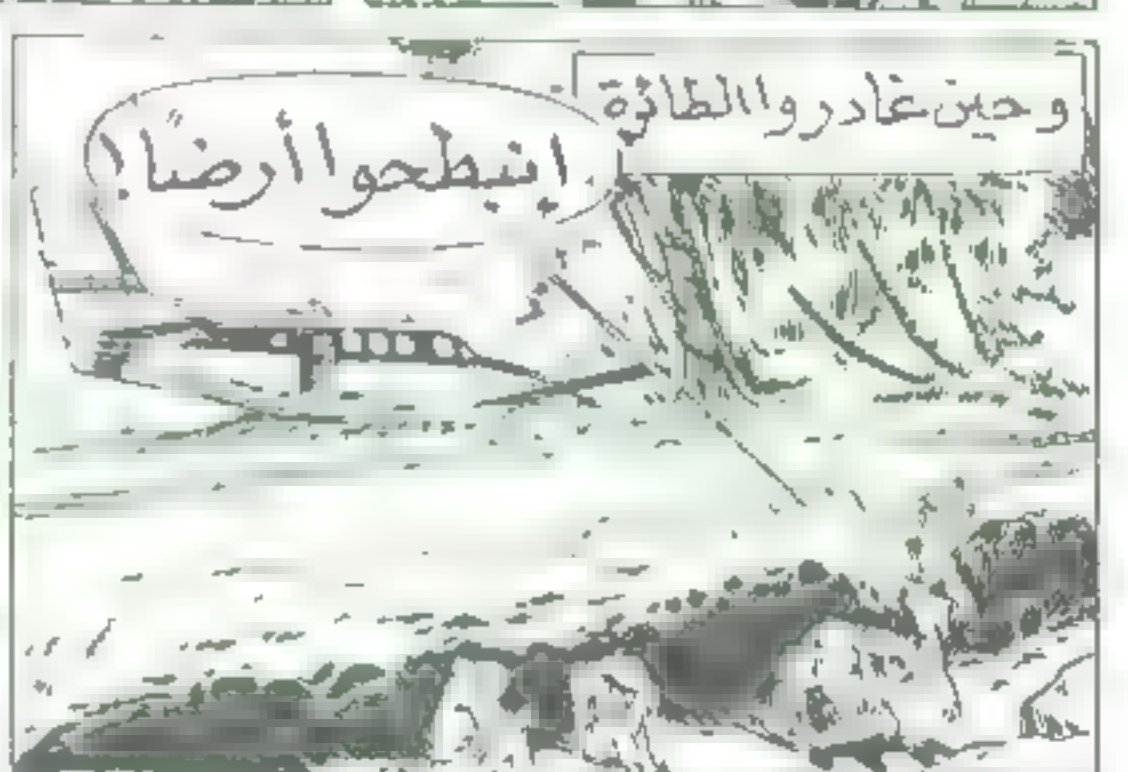 وحين غادروا الطائرة
إنبطحوا أرضًا!